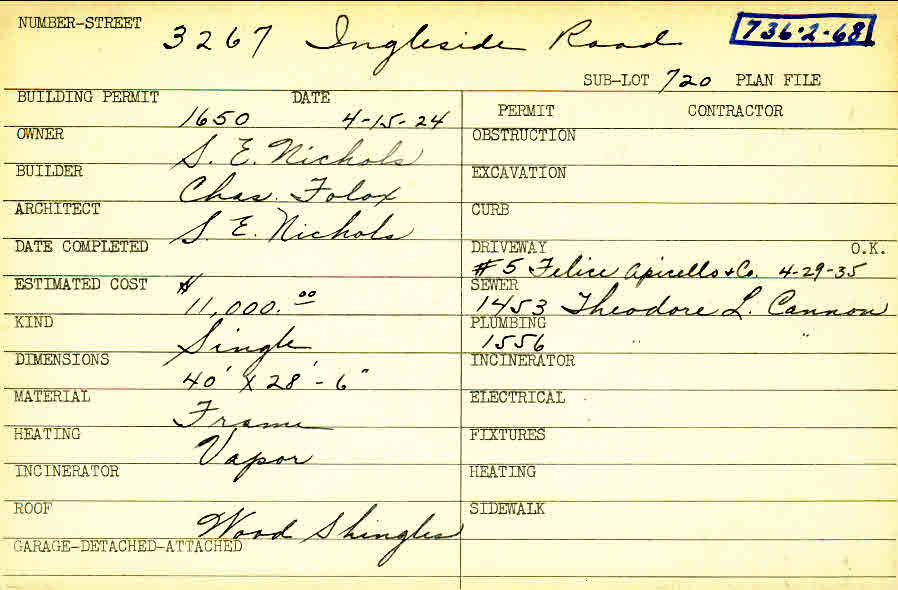 NUMBER-STREET 3267 Ingleside Road 736-2-68
SUB-LOT 720 PLAN FILE
BUILDING PERMIT 1650 DATE 4-15-24
OWNER S. E. Nichols
BUILDER Chas. Folox
ARCHITECT S. E. Nichols
DATE COMPLETED
ESTIMATED COST $ 11,000.00
KIND Single
DIMENSIONS 40' x 28'-6"
MATERIAL Frame
HEATING Vapor
INCINERATOR
ROOF Wood Shingles
GARAGE-DETACHED-ATTACHED
PERMIT CONTRACTOR
OBSTRUCTION
EXCAVATION
CURB
DRIVEWAY O.K.
#5 Felice Apicello & Co. 4-29-35
SEWER
1453 Theodore L. Cannon
PLUMBING
1556 " "
INCINERATOR
ELECTRICAL
FIXTURES
HEATING
SIDEWALK